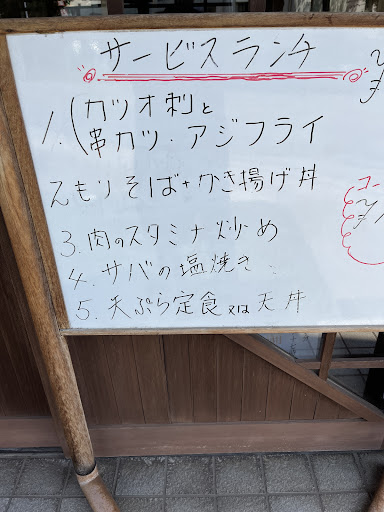 サービスランチ
1.(カツオ刺と
串カツ・アジフライ
2もりそば+かき揚げ丼
3.肉のスタミナ炒め
4.サバの塩焼き
5.天ぷら定食又は天丼
コー